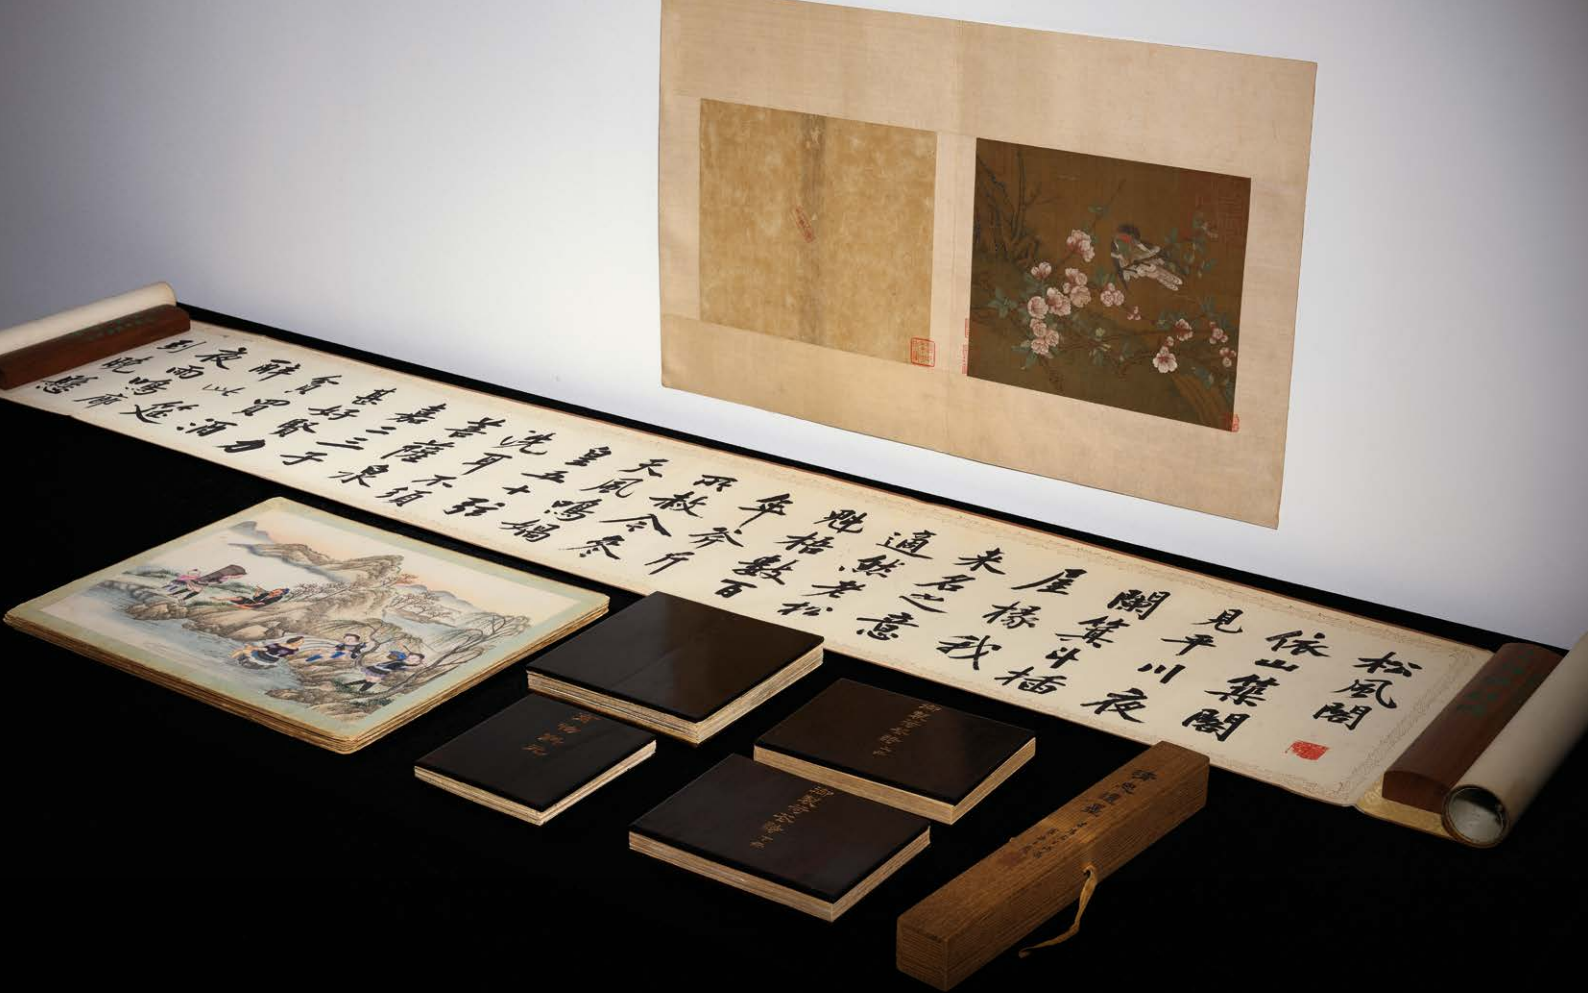 松風閣
依山築閣
見平川夜
闌箕斗插
屋椽我
来名之意
適然老松
魁梧數百
年斧斤
所赦今參
天風鳴媧
皇五十弦
洗耳不須
菩薩泉
嘉二三子
甚好賢力
貧買酒
醉此筵
夜雨鳴廊
到曉懸